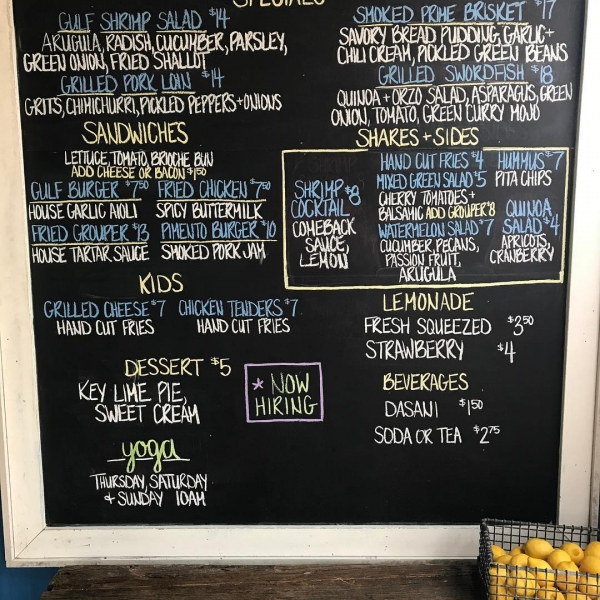 SPECIALS
GULF SHRIMP SALAD $14
ARUGULA, RADISH, CUCUMBER, PARSLEY,
GREEN ONION, FRIED SHALLOT
GRILLED PORK LOIN $14
GRITS, CHIMICHURRI, PICKLED PEPPERS + ONIONS
SMOKED PRIME BRISKET $17
SAVORY BREAD PUDDING, GARLIC +
CHILI CREAM, PICKLED GREEN BEANS
GRILLED SWORDFISH $18
QUINOA + ORZO SALAD, ASPARAGUS, GREEN
ONION, TOMATO, GREEN CURRY MOJO
SANDWICHES
LETTUCE, TOMATO, BRIOCHE BUN
ADD CHEESE OR BACON $1.50
GULF BURGER $7.50
HOUSE GARLIC AIOLI
FRIED CHICKEN $7.50
SPICY BUTTERMILK
FRIED GROUPER $13
HOUSE TARTAR SAUCE
PIMENTO BURGER $10
SMOKED PORK JAM
SHARES + SIDES
SHRIMP $8
COCKTAIL
COMEBACK
SAUCE,
LEMON
HAND CUT FRIES $4
MIXED GREEN SALAD $5
CHERRY TOMATOES +
BALSAMIC ADD GROUPER $8
WATERMELON SALAD $7
CUCUMBER, PECANS,
PASSION FRUIT,
ARUGULA
HUMMUS $7
PITA CHIPS
QUINOA
SALAD $4
APRICOTS,
CRANBERRY
KIDS
GRILLED CHEESE $7
HAND CUT FRIES
CHICKEN TENDERS $7
HAND CUT FRIES
LEMONADE
FRESH SQUEEZED $3.50
STRAWBERRY $4
DESSERT $5
KEY LIME PIE,
SWEET CREAM
* NOW
HIRING
BEVERAGES
DASANI $1.50
SODA OR TEA $2.75
yoga
THURSDAY, SATURDAY
+ SUNDAY 10AM